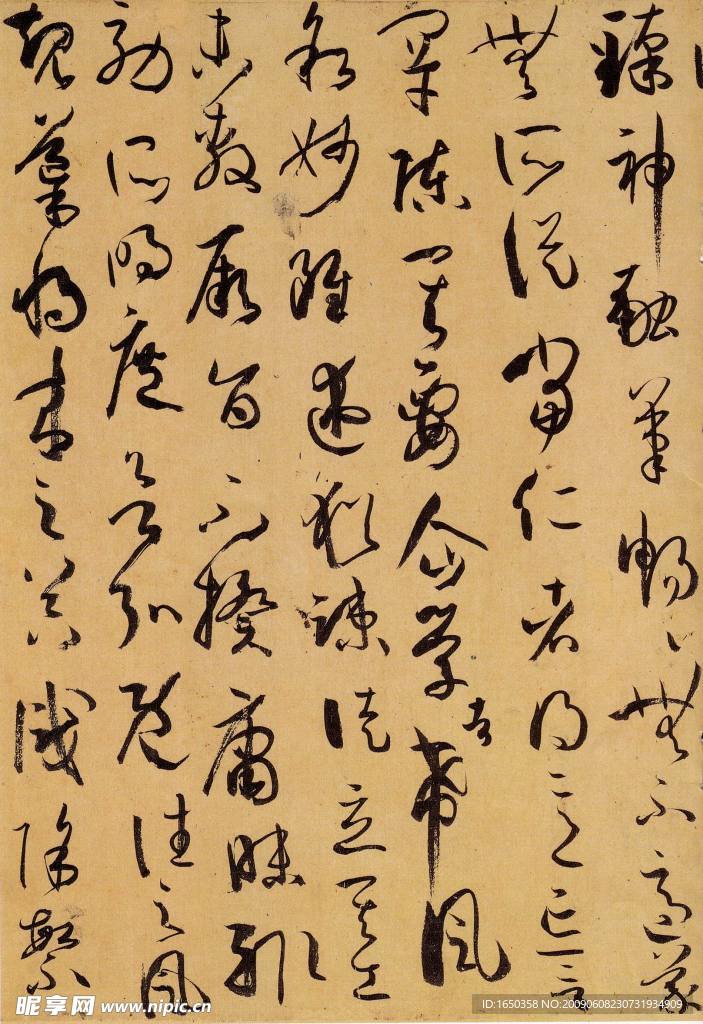 臻神融筆暢〻無不適蒙
無所從當仁者得意忘言
罕陳其要企學者希風
敘妙雖述猶疎徒立其工
未敷厥旨不揆庸昧輒
効所明庶欲弘既往之風
規導將來之器識除繁
昵享网 www.nipic.cn
ID:1650358 NO:20090608230731934909